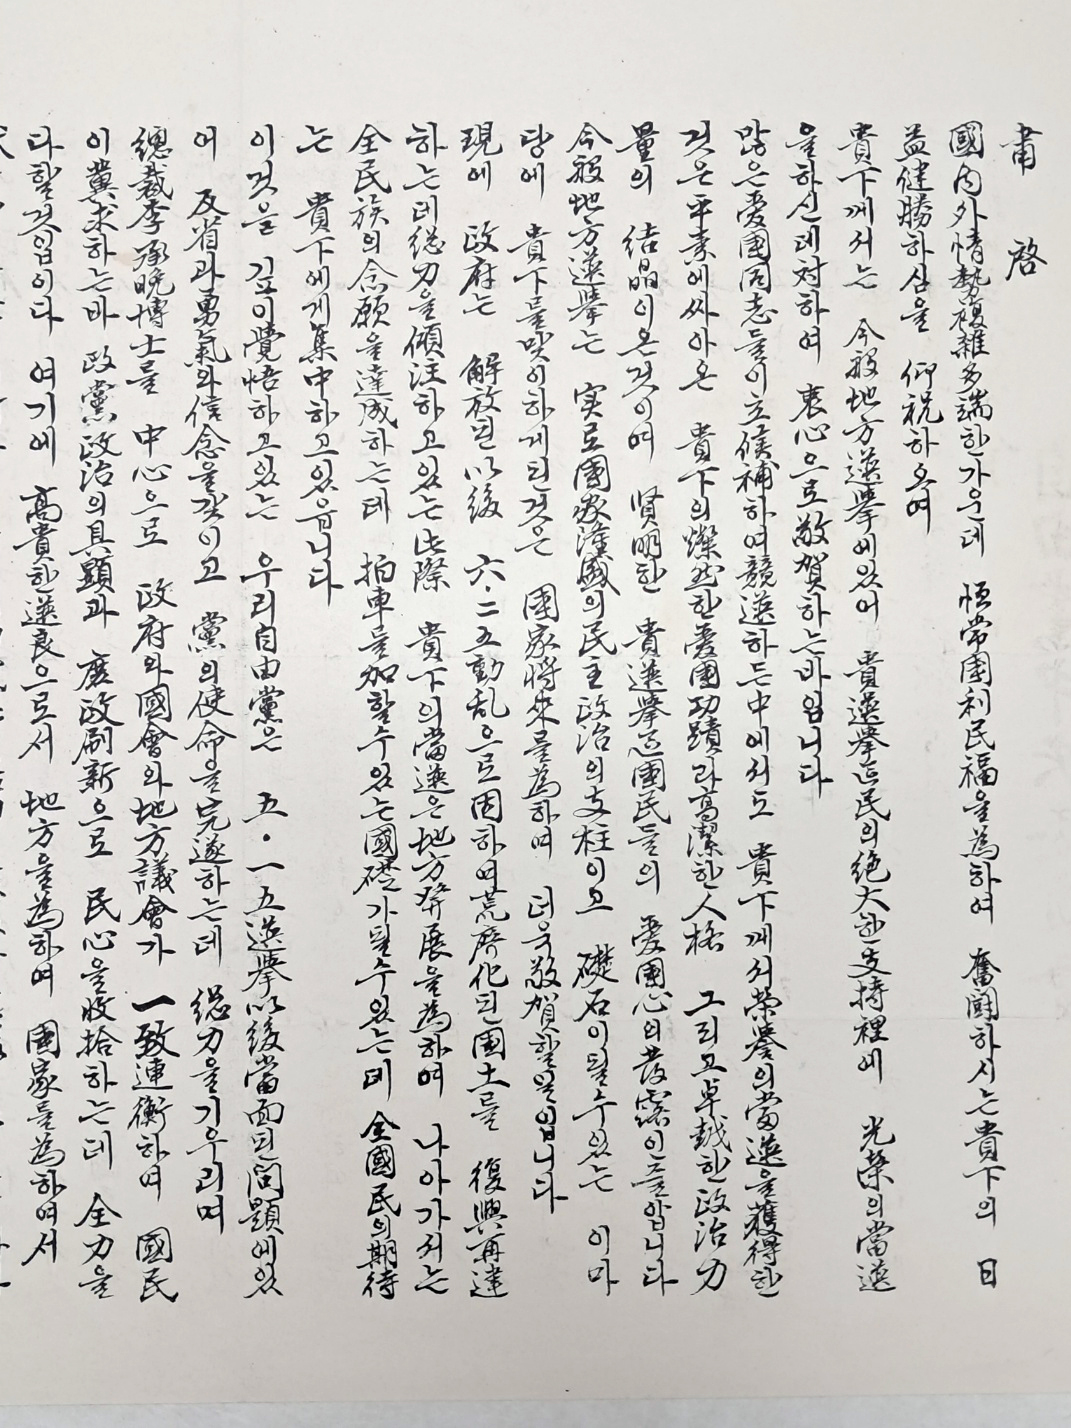 肅啓
國內外情勢複雜多端한가운데 恒常國利民福을爲하여 奮闘하시는貴下의 日
益健勝하심을 仰祝하오며
貴下께서는 今般地方選擧에있어 貴選擧區民의絶大한支持裡에 光榮의當選
을하신데対하여 衷心으로敬賀하는바입니다
많은愛國同志들이立候補하여競選하는中에서도 貴下께서榮譽의當選을獲得한
것은平素에싸아온 貴下의燦然한愛國功蹟과高潔한人格 그리고卓越한政治力
量의 結晶이온것이며 賢明한 貴選擧區國民들의 愛國心의發露인줄압니다
今般地方選擧는 実로國家隆盛의民主政治의支柱이고 礎石이될수있는 이마
당에 貴下를맞이하게된것은 國家將來를爲하여 더욱敬賀할일입니다
現에 政府는 解放된以後 六·二五動乱으로因하여荒廢化된國土를 復興再建
하는데総力을傾注하고있는此際 貴下의當選은地方発展을爲하며 나아가서는
全民族의念願을達成하는데 拍車를加할수있는國礎가될수있는데 全國民의期待
는 貴下에게集中하고있읍니다
이것을 깊이覺悟하고있는 우리自由黨은 五·一五選擧以後當面된問題에있
어 反省과勇氣와信念을갖이고 黨의使命을完遂하는데 総力을기우리며
總裁李承晩博士를 中心으로 政府와國會와地方議會가 一致連衡하여 國民
이冀求하는바 政黨政治의具顯과 庶政刷新으로 民心을收拾하는데 全力을
다할것입이다 여기에 高貴한選良으로서 地方을爲하여 國家를爲하여서